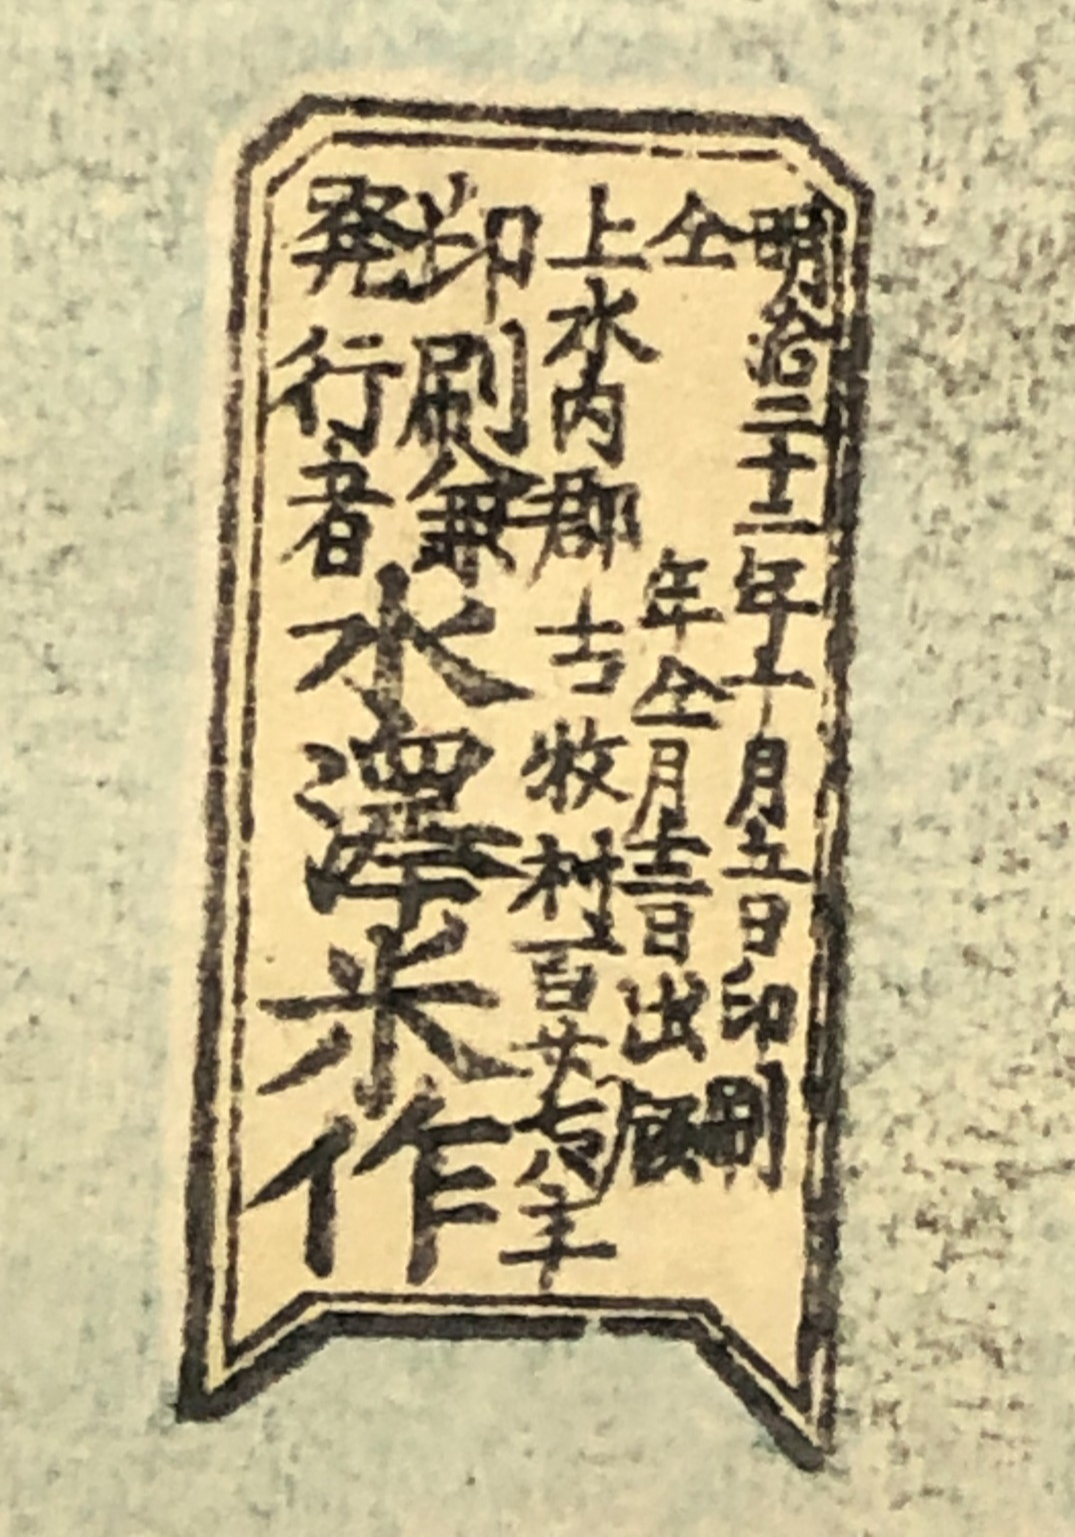 明治二十二年十月五日印刷
仝年仝月十二日出版
上水内郡古牧村百廿七八年
印刷兼
発行者
水澤米作